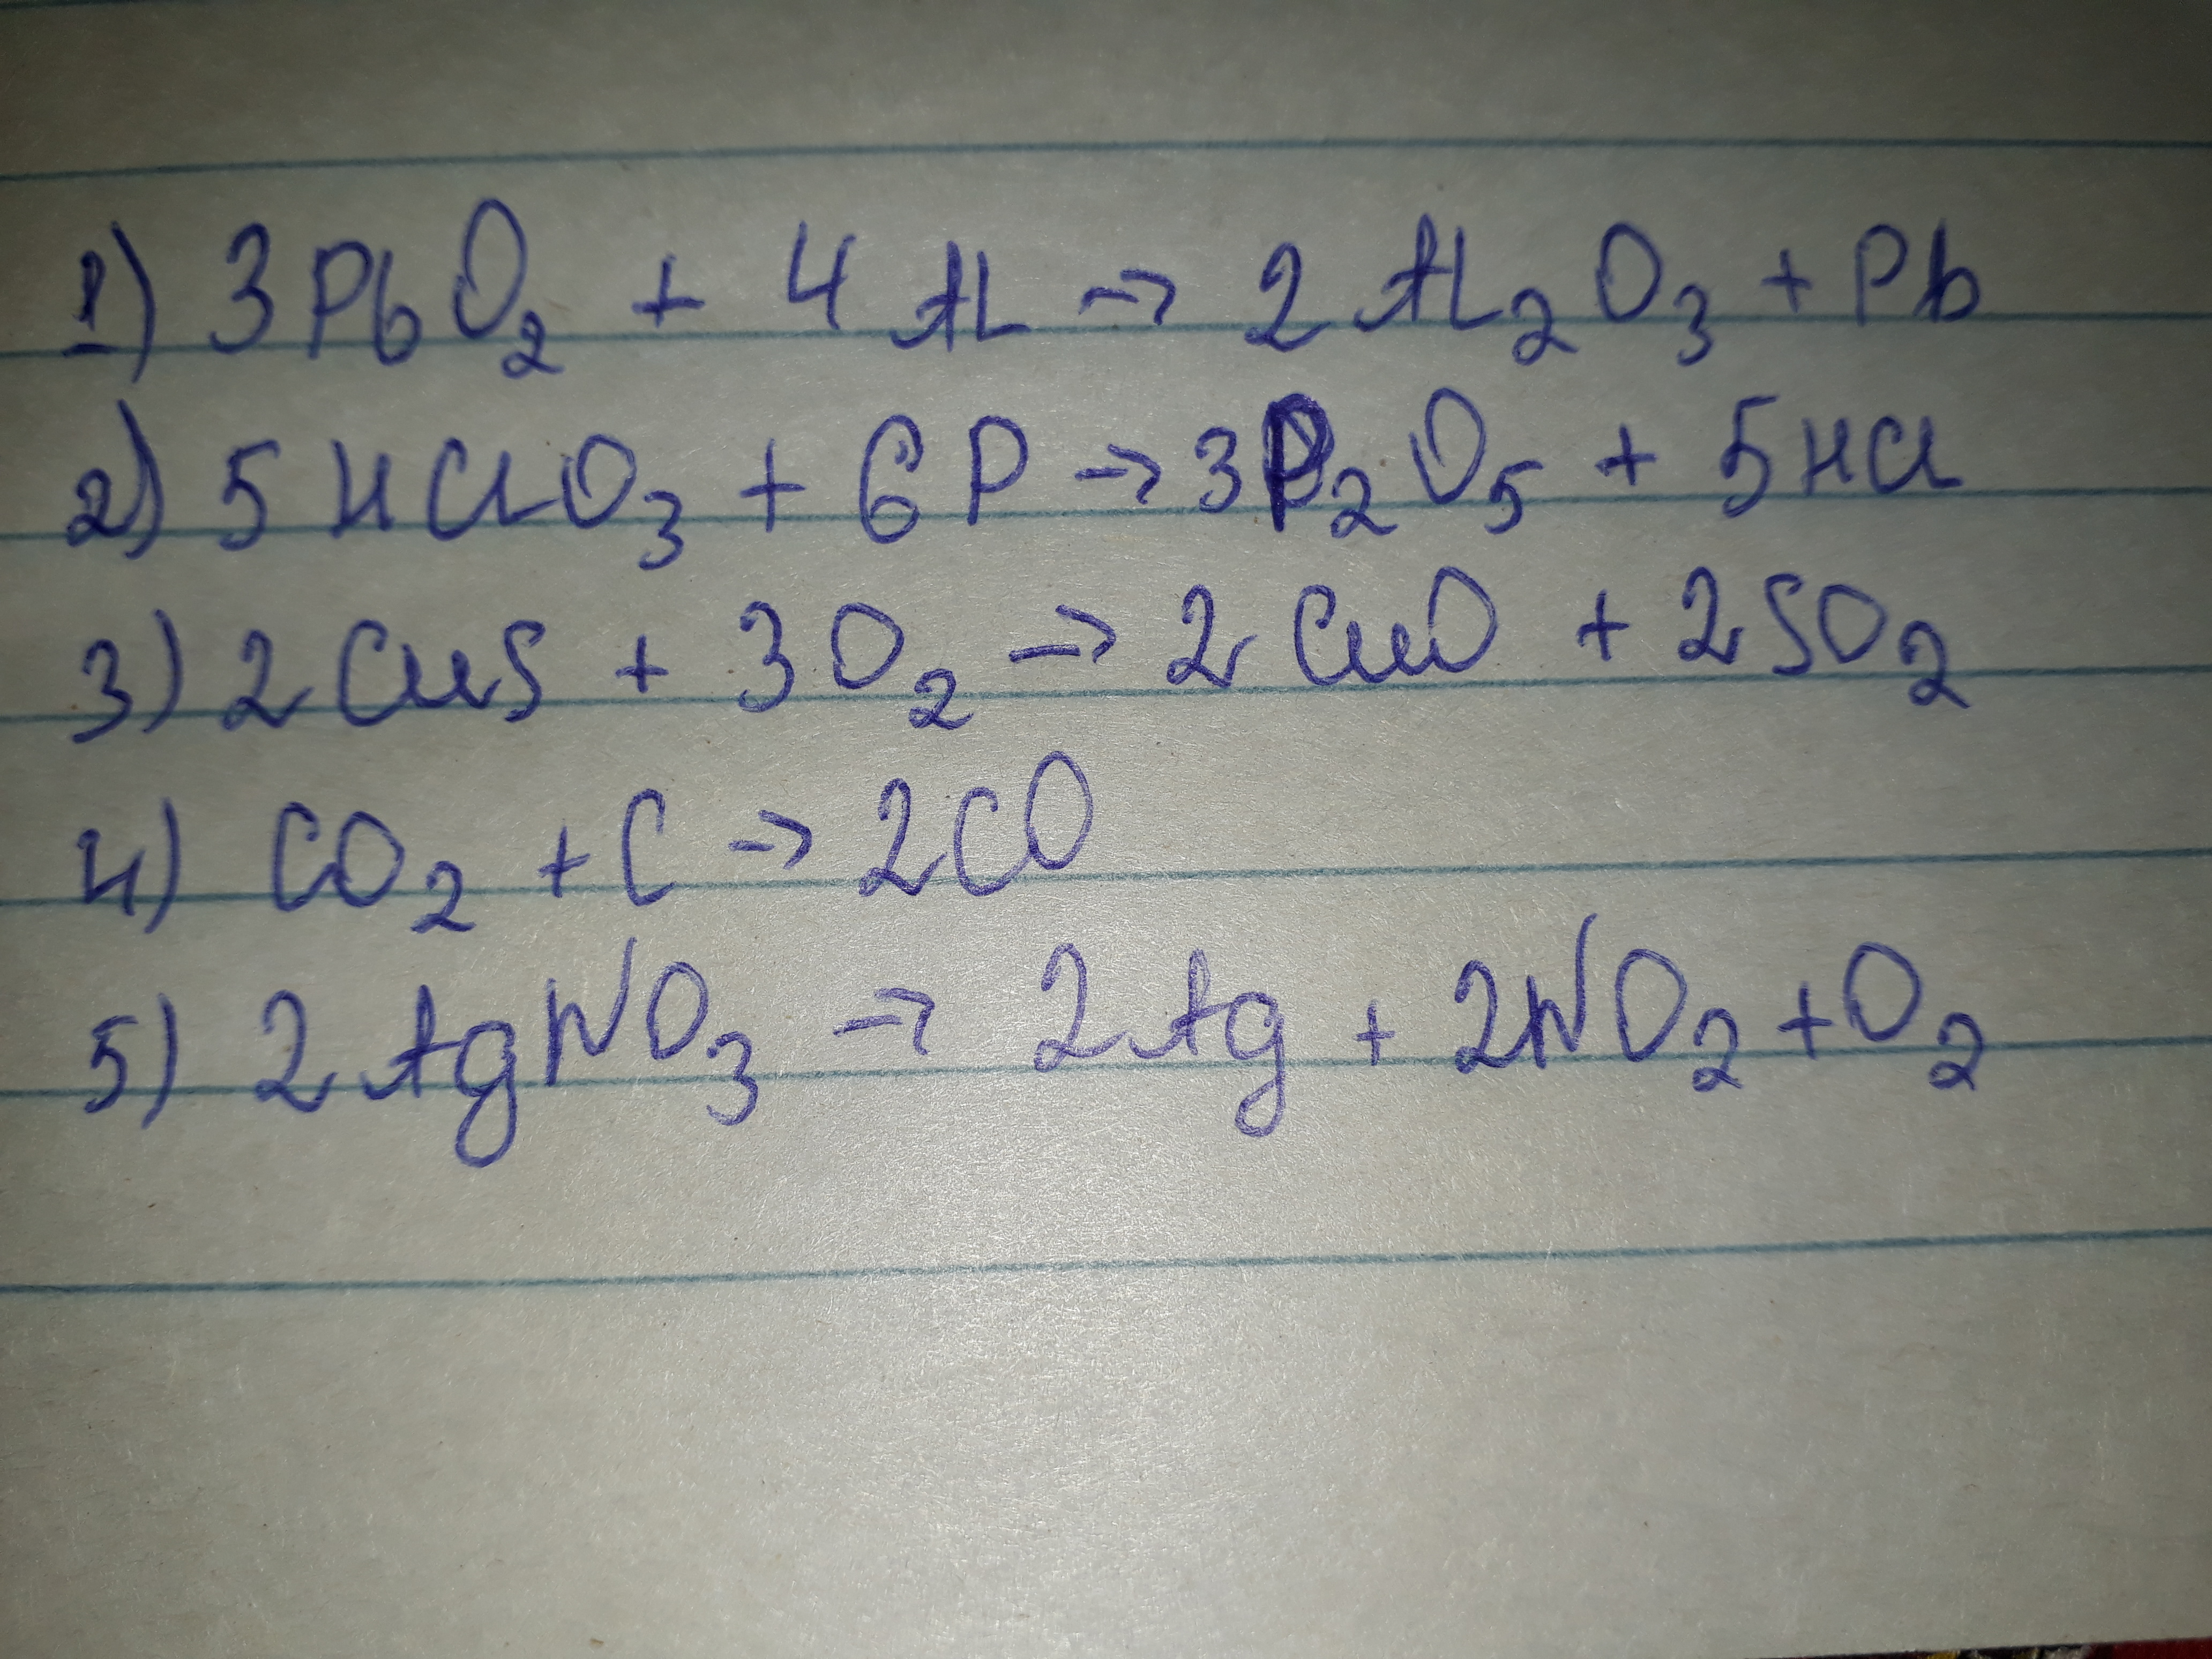 1) 3PbO₂ + 4Al → 2Al₂O₃ + Pb
2) 5HClO₃ + 6P → 3P₂O₅ + 5HCl
3) 2CuS + 3O₂ → 2CuO + 2SO₂
4) CO₂ + C → 2CO
5) 2AgNO₃ → 2Ag + 2NO₂ + O₂